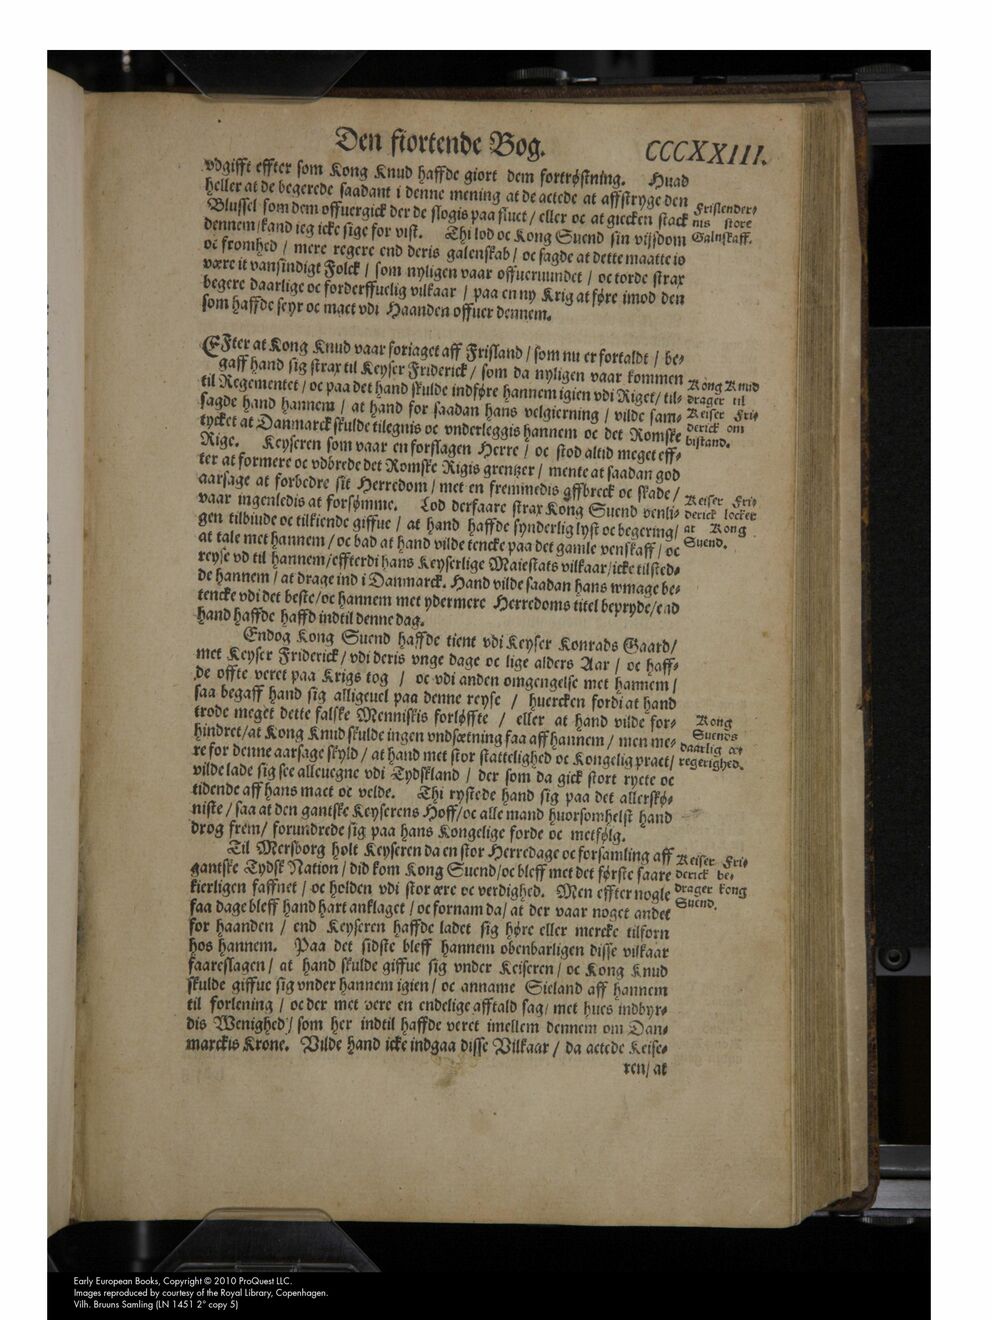 Den fiortende Bog. CCCXXIII.
vdgifft effter som Kong Knud haffde giort dem fortrøstning. Huad
heller at de begerede saadant i denne mening at de actede at affstryge den
Blussel som dem offuergick der de slogis paa sluct / eller oc at giecken stack
dennem / kand ieg icke sige for vist. Thi lod oc Kong Suend sin vijsdom
oc fromhed / mere regere end deris galenskab / oc sagde at dette maatte io
være it vansindigt Folck / som nyligen vaar offueruundet / oc torde strax
begere daarlige oc forderffuelig vilkaar / paa en ny Krig at føre imod den
som haffde seyr oc mact vdi Haanden offuer dennem.
Frislender-
nis store
Galnskaff.
EFter at Kong Knud vaar foriaget aff Frisland / som nu er fortaldt / be-
gaff hand sig strax til Keyser Friderick / som da nyligen vaar kommen
til Regementet / oc paa det hand skulde indføre hannem igien vdi Riget / til-
sagde hand hannem / at hand for saadan hans velgierning / vilde sam-
tycket at Danmarck skulde tilegnis oc vnderleggis hannem oc det Romske
Rige. Keyseren som vaar en forslagen Herre / oc stod altid meget eff-
ter at formere oc vdbrede det Romske Rigis grentzer / mente at saadan god
aarsage at forbedre sit Herredom / met en fremmedis gffbreck oc skade /
vaar ingenledis at forsømme. Lod derfaare strax Kong Suend venli-
gen tilbiude oc tilkiende giffue / at hand haffde synderlig lyst oc begering /
at tale met hannem / oc bad at hand vilde tencke paa det gamle venskaff / oc
reyse vd til hannem / effterdi hans Keyserlige Maiestats vilkaar / icke tilsted-
de hannem / at drage ind i Danmarck. Hand vilde saadan hans wmage be-
tencke vdi det beste / oc hannem met ydermere Herredoms titel bepryde / end
hand haffde haffd indtil denne dag.
Kong Knud
drager til
Keiser Fri-
derick om
bistand.
Keiser Fri-
derick locker
at Kong
Suend.
Endog Kong Suend haffde tient vdi Keyser Konrads Gaard /
met Keyser Friderick / vdi deris vnge dage oc lige alders Aar / oc haff-
de offte veret paa Krigs tog / oc vdi anden omgengelse met hannem /
saa begaff hand sig alligeuel paa denne reyse / huercken fordi at hand
trode meget dette falske Menniskis forløffte / eller at hand vilde for-
hindret / at Kong Knud skulde ingen vndsætning faa aff hannem / men me-
re for denne aarsage skyld / at hand met stor stattelighed oc Kongelig pract /
vilde lade sig see alleuegne vdi Tydskland / der som da gick stort rycte oc
tidende aff hans mact oc velde. Thi rystede hand sig paa det allerskø-
niste / saa at den gantske Keyserens Hoff / oc alle mand huorsomhelst hand
drog frem / forundrede sig paa hans Kongelige forde oc metfølg.
Kong
Suends
daarlig ær
regerighed.
Til Mersborg holt Keyseren da en stor Herredage oc forsamling aff
gantske Tydsk Nation / did kom Kong Suend / oc bleff met det første saare
kierligen faffnet / oc holden vdi stor ære oc verdighed. Men effter nogle
faa dage bleff hand hart anklaget / oc fornam da / at der vaar noget andet
for haanden / end Keyseren haffde ladet sig høre eller mercke tilforn
hos hannem. Paa det sidste bleff hannem obenbarligen disse vilkaar
faareslagen / at hand skulde giffue sig vnder Keiseren / oc Kong Knud
skulde giffue sig vnder hannem igien / oc anname Sieland aff hannem
til forlening / oc der met vere en endelige afftald sag / met hues indbyr-
dis Wenighed / som her indtil haffde veret imellem dennem om Dan-
marckis Krone. Vilde hand icke indgaa disse Vilkaar / da actede Keise-
ren / at
Keiser Fri-
derick be-
drager kong
Suend.
Early European Books, Copyright © 2010 ProQuest LLC.
Images reproduced by courtesy of the Royal Library, Copenhagen.
Vilh. Bruuns Samling (LN 1451 2° copy 5)